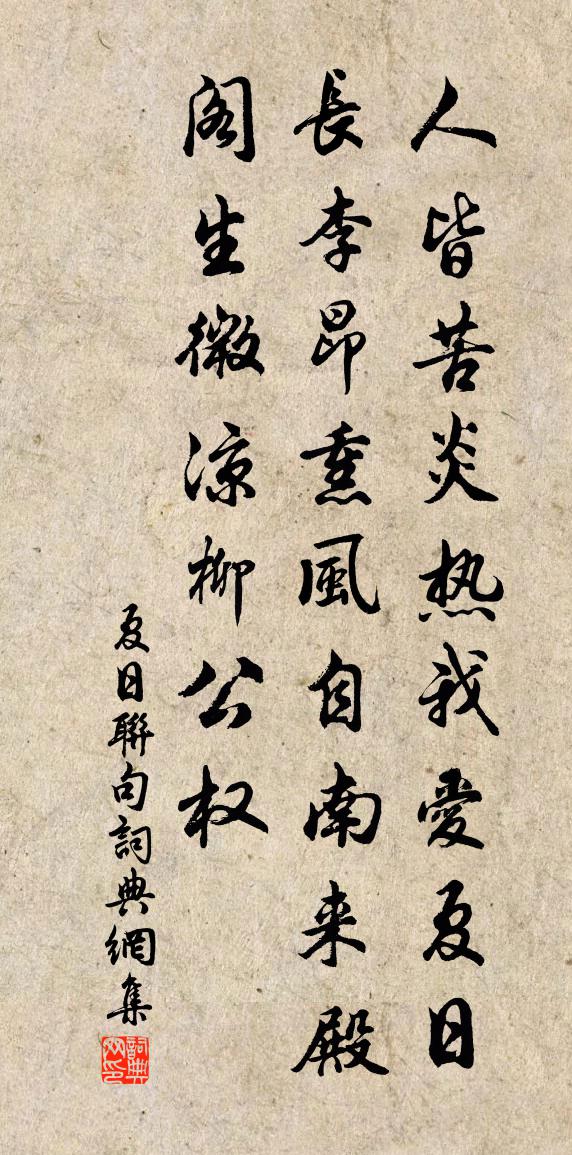 人皆苦炎热我愛夏日
長李昂熏風自南来殿
阁生微涼柳公权
夏日聯句詞典網集
詞典网印